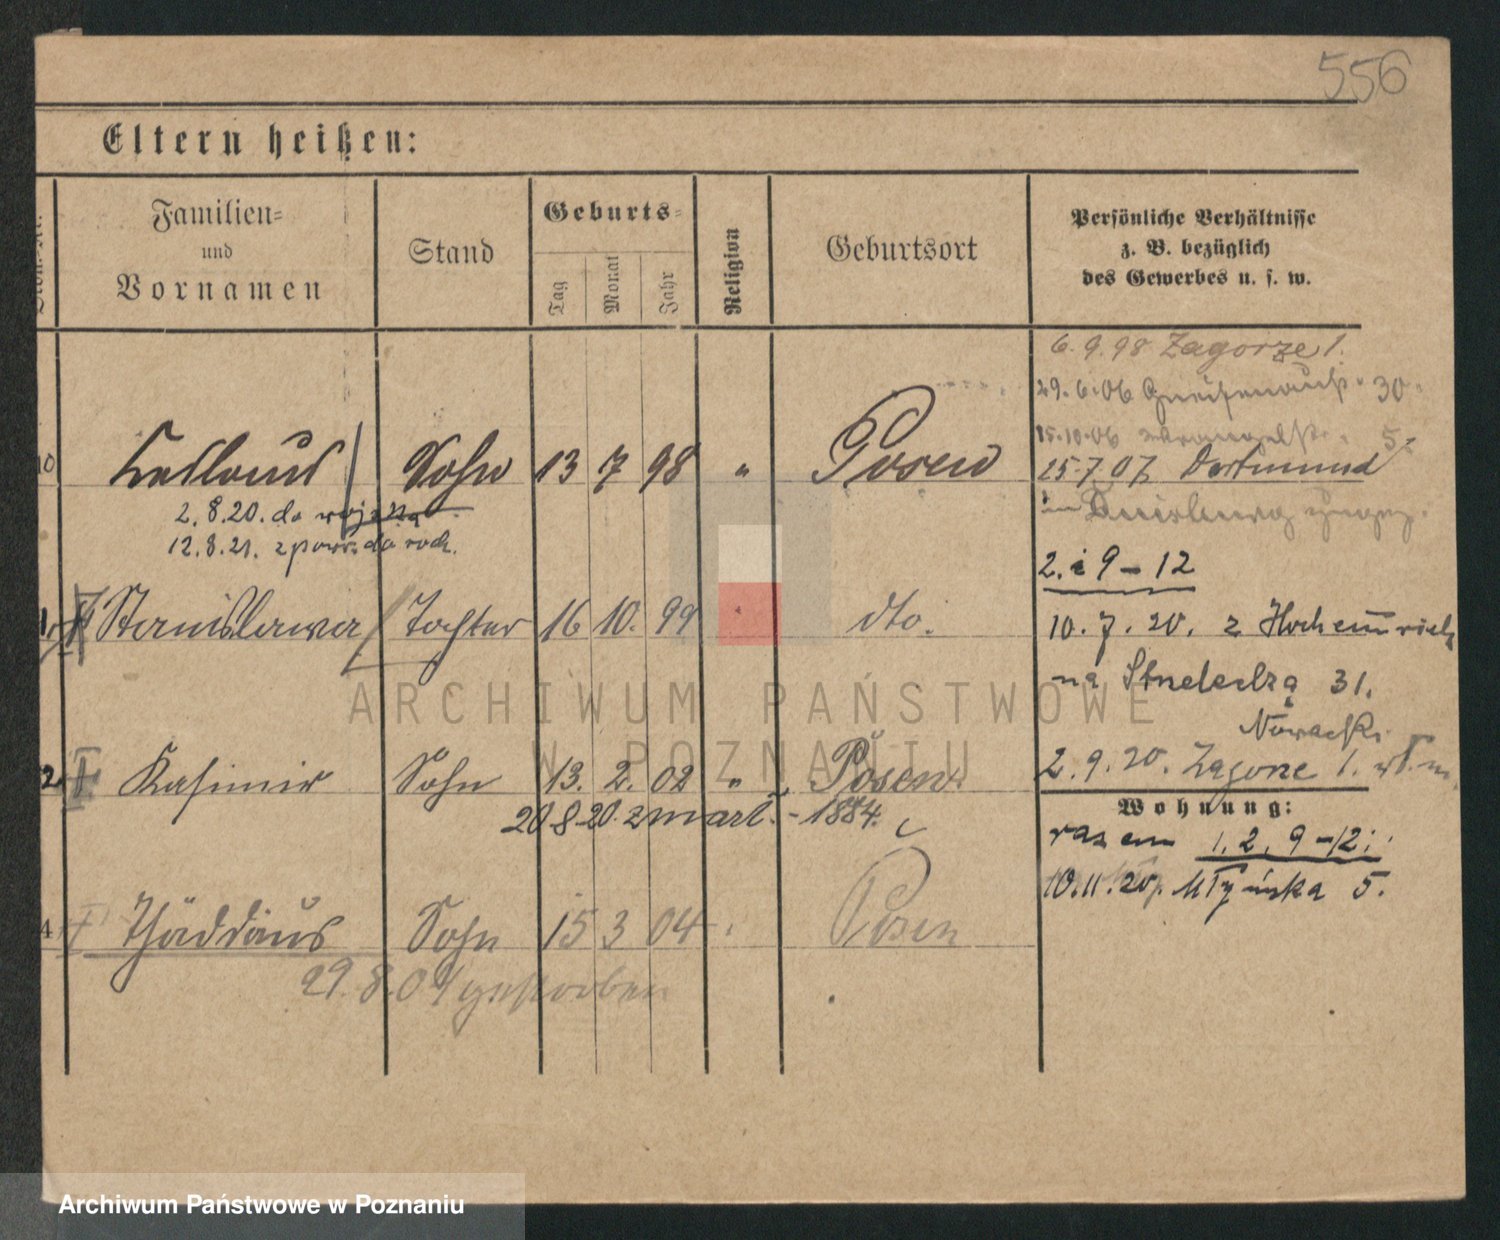 556
Eltern heißen:
Familien=
und
Vornamen
Stand
Geburts=
Tag
Monat
Jahr
Religion
Geburtsort
Persönliche Verhältnisse
z. B. bezüglich
des Gewerbes u. s. w.
6.9.98 Zagorze 1.
29.6.06 Gneisenaustr. 30
15.10.06 5
10 Sohn 13 7 98 " Posen
15.7.07 Dortmund
in Duisburg
2.8.20. do wojska
12.8.21. z powr. do rodz.
2. i 9 - 12
1 Stanislawa Tochter 16 10. 99 " dto.
10.7.20. z Hochemmrich
na Strzelecką 31.
Nowacki
2 Kasimir Sohn 13. 2. 02 " Posen
2.9.20. Zagorze 1.
20.8.20. z mart. - 1884.
Wohnung:
razem 1, 2, 9 - 12:
10.11.20. Młyńska 5.
4 Thäddäus Sohn 15 3 04 Posen
29.8.04 gestorben
ARCHIWUM PAŃSTWOWE
W POZNANIU
Archiwum Państwowe w Poznaniu